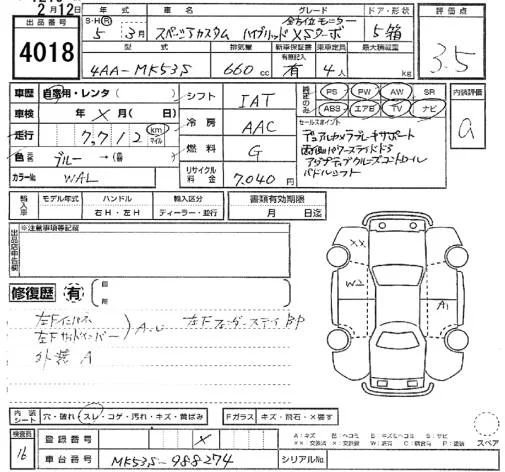 2月12日
出品番号
4018
年式 グレード ドア・形状 評価点
S・H・R 5年 3月 スペーシアカスタム ハイブリッドXSターボ 5 箱 3.5
全方位モニター
型式 排気量 新車保証書 乗車定員 最大積載量
有無記入
4AA-MK53S 660 cc 有 4人 kg
車歴 自家用・レンタ( )
車検 年 × 月( 日)
走行 7,712 km マイル
色 ブルー→( )
カラーNo. WAL
シフト IAT
冷房 AAC
燃料 G
リサイクル料金 7,040円
PS PW AW SR
ABS エアB TV ナビ
内装評価
a
セールスポイント
デュアルカメラブレーキサポート
両側パワースライドドア
アダプティブクルーズコントロール
パドルシフト
輸入車 モデル年式 ハンドル 輸入区分 書類有効期限
右H・左H ディーラー・並行 月 日迄
出品店申告欄 ※注意事項等記載
修復歴 有
左Fインパネ
左Fサイドメンバー
外装 A
XX
W2
A1
内装シート 穴・破れ スレ・コゲ・汚れ・キズ・黄ばみ Fガラス キズ・飛石・×要す
スペア
検査員
16
登録番号 ×
車台番号 MK53S-988274 シリアルNo.